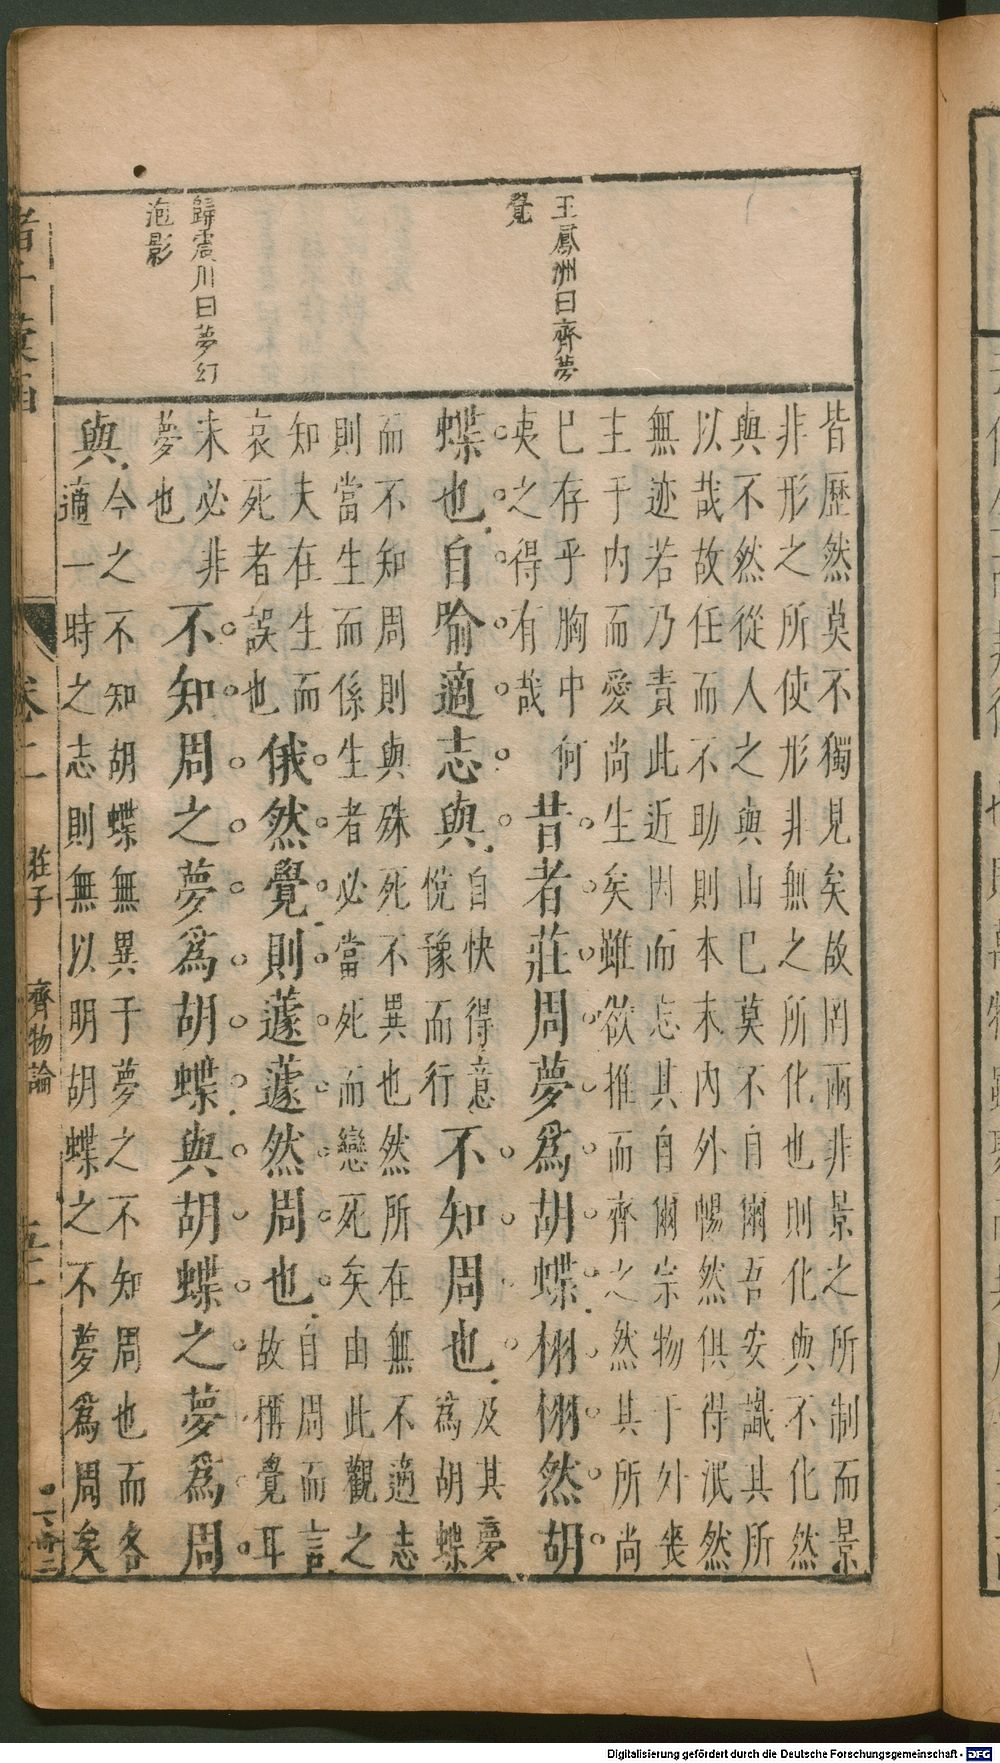 王鳳洲曰齊夢
覺
歸震川曰夢幻
泡影
皆歷然莫不獨見矣故罔兩非景之所制而景
非形之所使形非無之所化也則化與不化然
與不然從人之與山巳莫不自爾吾安識其所
以哉故任而不助則本末內外暢然俱得泯然
無迹若乃責此近因而忘其自爾宗物于外喪
主于內而愛尚生矣雖欲推而齊之然其所尚
巳存乎胸中何
夷之得有哉
昔者莊周夢爲胡蝶栩栩然胡
蝶也自喻適志與
自快得意
悅豫而行
不知周也
及其夢
爲胡蝶
而不知周則與殊死不異也然所在無不適志
則當生而係生者必當死而戀死矣由此觀之
知夫在生而
哀死者誤也
俄然覺則蘧蘧然周也
自周而言
故稱覺耳
未必非
夢也
不知周之夢爲胡蝶與胡蝶之夢爲周
與
今之不知胡蝶無異于夢之不知周也而各
適一時之志則無以明胡蝶之不夢爲周矣
卷二
莊子
齊物論
Digitalisierung gefördert durch die Deutsche Forschungsgemeinschaft - DFG